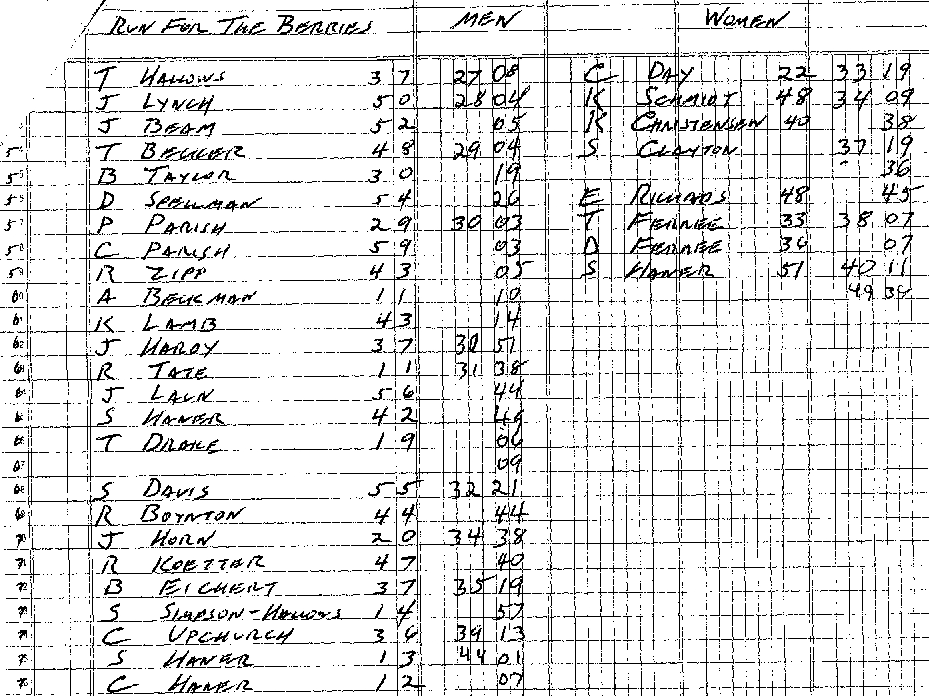 RUN FOR THE BERRIES MEN WOMEN
T HALLOWS 37 27 08 C DAY 22 33 19
J LYNCH 50 28 04 K SCHMIDT 48 34 09
J BEAM 52 05 K CHRISTENSEN 40 38
T BECKER 48 29 04 S CLAYTON 37 19
B TAYLOR 30 19 36
D SPELLMAN 54 26 E RICHARDS 48 45
P PARISH 29 30 03 T FERREE 33 38 07
C PARISH 59 03 D FERREE 34 07
R ZIPP 43 05 S HANER 51 40 11
A BECKMAN 11 10 49 34
K LAMB 43 14
J HARDY 37 30 51
R TATE 11 31 38
J LAUN 56 44
S HANER 42 46
T DRAKE 19 06
09
S DAVIS 55 32 21
R BOYNTON 44 44
J HORN 20 34 38
R KOETTER 47 40
B EICHERT 37 35 19
S SIMPSON-HALLOWS 14 57
C UPCHURCH 36 39 13
S HANER 13 44 01
C HANER 12 07